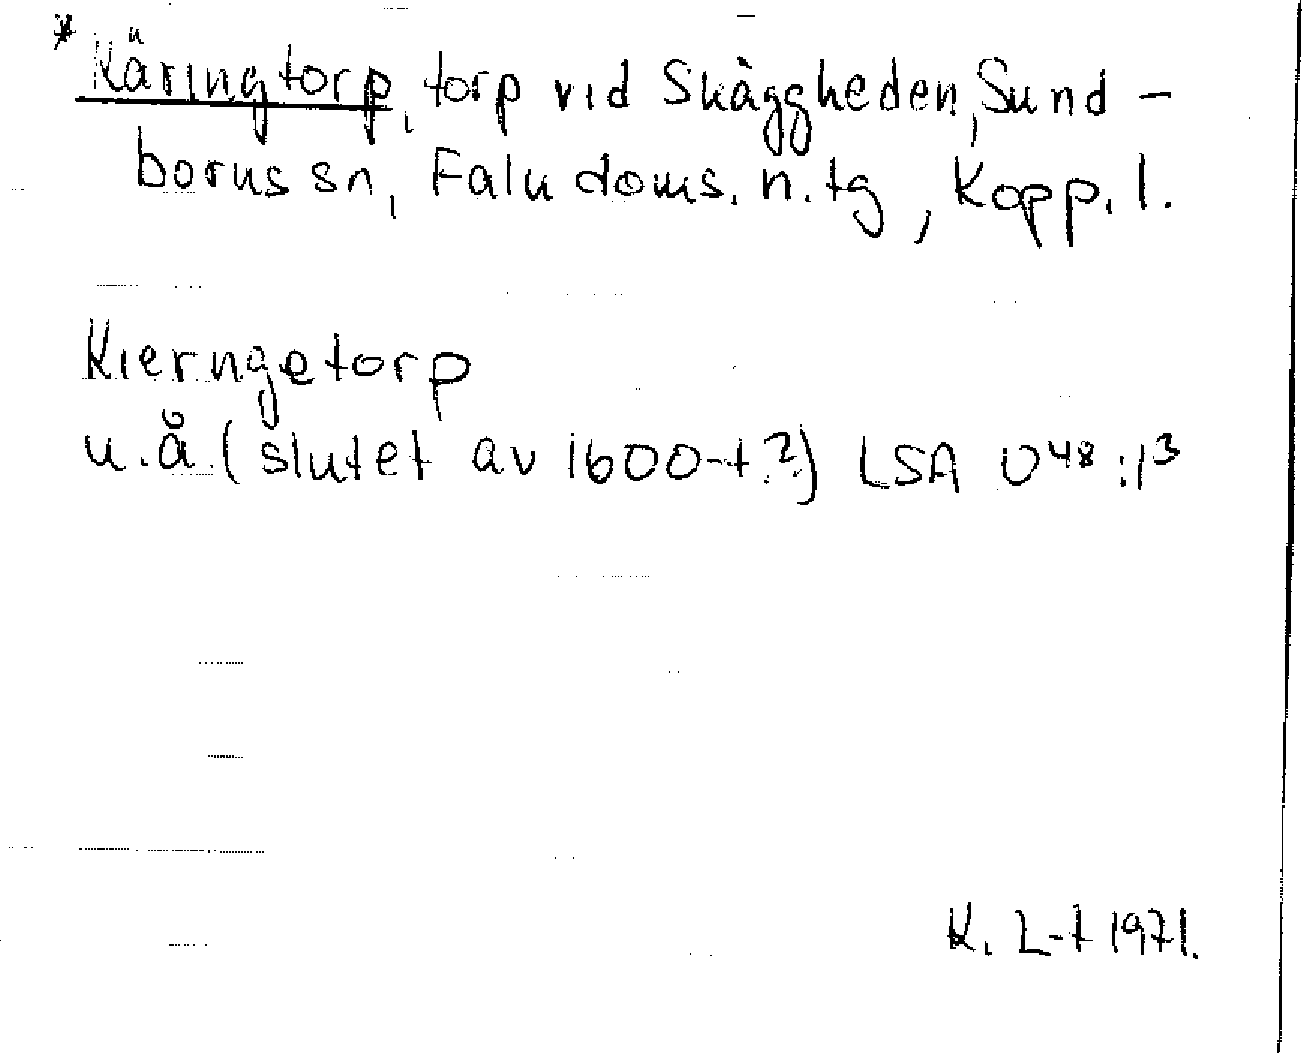 * Käringtorp, torp vid Skäggheden, Sund-
borns sn, Falu doms. n. tg, Kopp. l.
Kierngetorp
u. å. (slutet av 1600-t.?) LSA U48:13
K. L-t 1971.